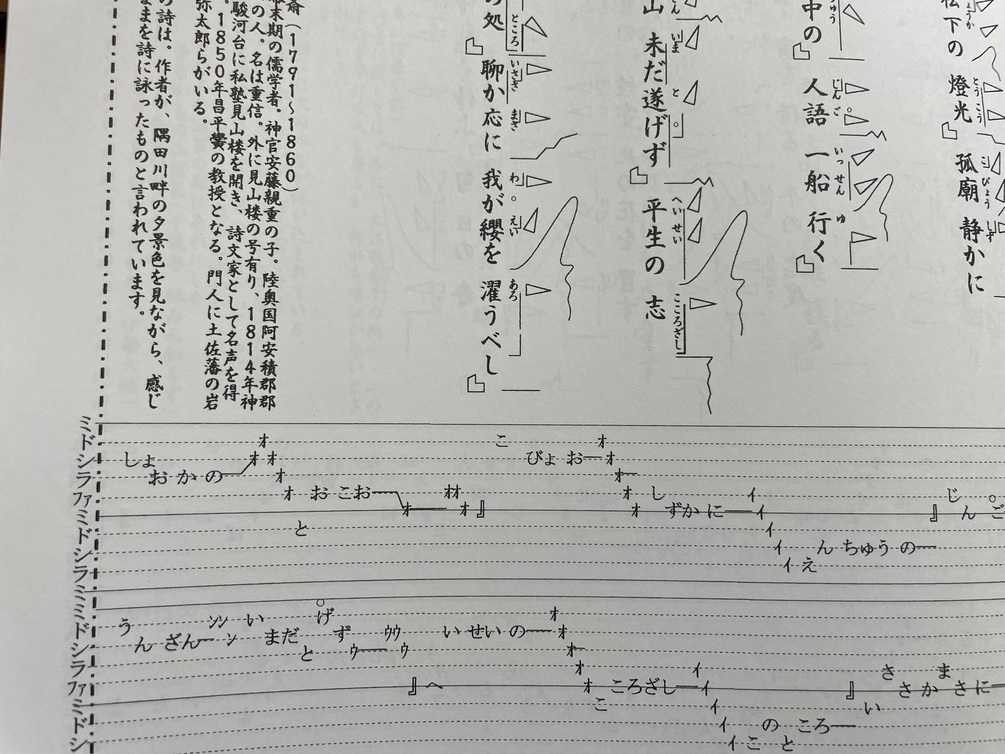 松下の 燈光 孤廟 静かに
中の 人語 一船 行く
山 未だ遂げず 平生の 志
の処 聊か応に 我が纓を 濯うべし
斎(1791〜1860)
幕末期の儒学者。神官安藤親重の子。陸奥国阿安積郡郡
の人。名は重信。外に見山楼の号有り、1814年神
駿河台に私塾見山楼を開き、詩文家として名声を得
。1850年昌平黌の教授となる。門人に土佐藩の岩
弥太郎らがいる。
の詩は。作者が、隅田川畔の夕景色を見ながら、感じ
ままを詩に詠ったものと言われています。
ミ
ド
シ
ラ
ファ
ミ
ド
シ
ラ
ミ
しょ おかの オ オ オ オ オ と お こお オ オオ オ 』 こ びょ お オ オ オ オ オ し ずか に イ イ イ イ イ え ん ちゅう の 』 じ ん ご
ミ
ド
シ
ラ
ファ
ミ
ド
シ
う ん ざん ンン ン い まだ と げ ず ウ ウウ ウ 』 へ い せい の オ オ オ オ オ こ ころざし イ イ イ イ イ こ と の ころ 』 い さ さ か ま さ に